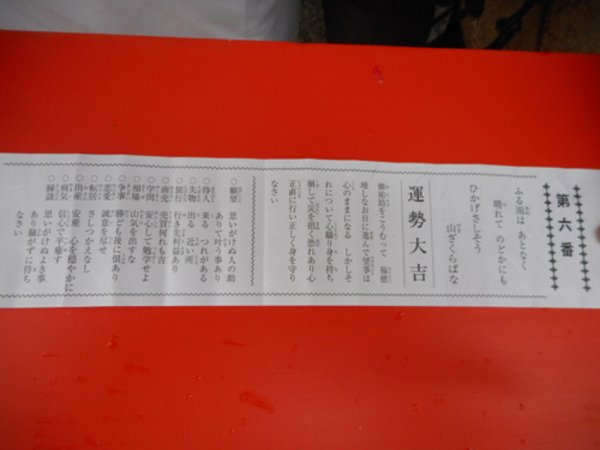 第六番
ふる雨は あとなく
晴れて のどかにも
ひかげさしそう
山ざくらばな
運勢大吉
御祐助をこうむって 福徳
増しなお日に進んで望事は
心のままになる しかしそ
れについて心驕り身を持ち
崩して災を招く恐れあり心
正直に行い正しく身を守り
なさい
○願望 思いがけぬ人の助
ありて叶う事あり
○待人 来る つれがある
○失物 出る 近い所
○旅行 行き先利益あり
○商売 売買何れも吉
○学問 安心して勉学せよ
○相場 山気を出すな
○争事 勝ども後に恨あり
○恋愛 誠意を尽せ
○転居 さしつかえなし
○出産 安産 心を穏やかに
○病気 信心で平癒す
○縁談 思いがけぬよき事
あり騒がずに待ち
なさい